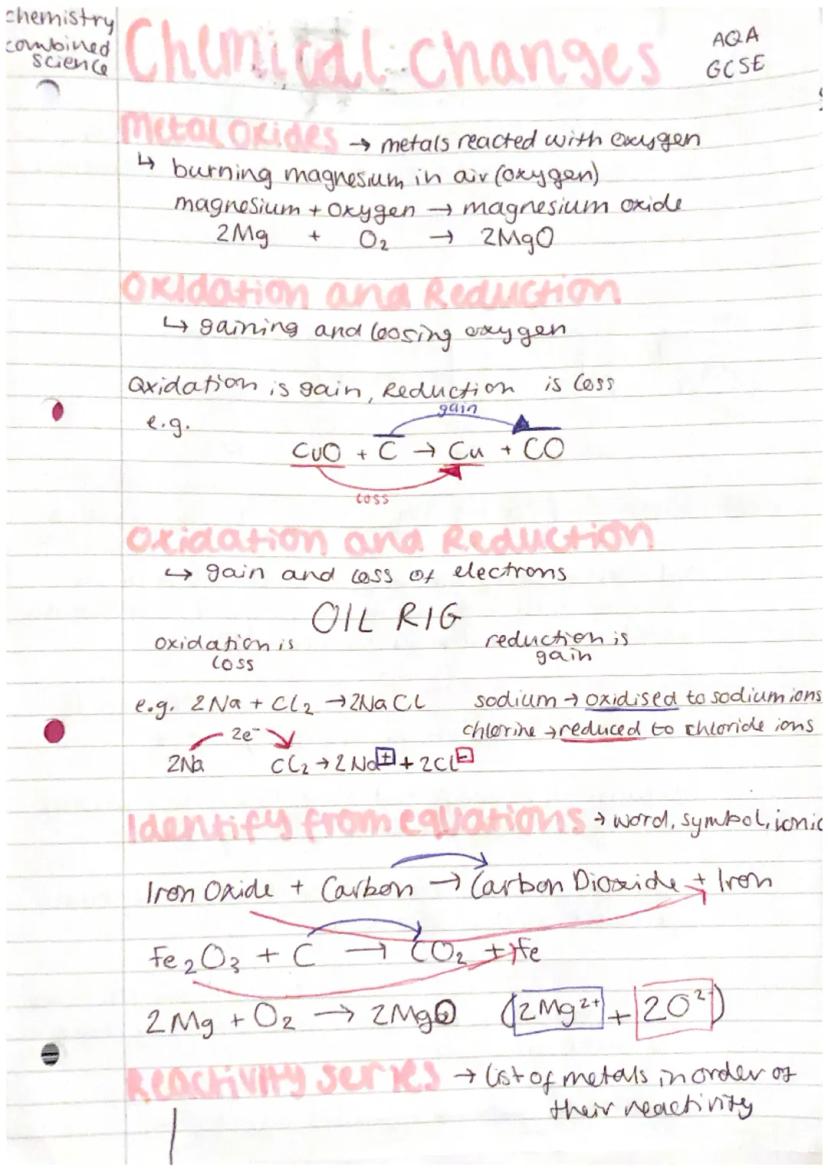 chemistry
combined
science
Chemical changes
AQA
GCSE
Metal Oxides → metals reacted with oxygen
↳ burning magnesium in air (oxygen)
magnesium + oxygen → magnesium oxide
2Mg + O₂ → 2MgO
Oxidation and Reduction
↳ gaining and loosing oxygen
Oxidation is gain, Reduction is loss
e.g.
gain
CuO + C → Cu + CO
loss
Oxidation and Reduction
↳ gain and loss of electrons
OIL RIG
oxidation is
loss
reduction is
gain
e.g. 2Na + Cl₂ → 2NaCl sodium → oxidised to sodium ions
chlorine → reduced to chloride ions
2e⁻
2Na Cl₂ → 2Na⁺ + 2Cl⁻
Identify from equations → word, symbol, ionic
Iron Oxide + Carbon → Carbon Dioxide + Iron
Fe₂O₃ + C → CO₂ + Fe
2Mg + O₂ → 2MgO (2Mg²⁺ + 2O²⁻)
Reactivity series → list of metals in order of
their reactivity